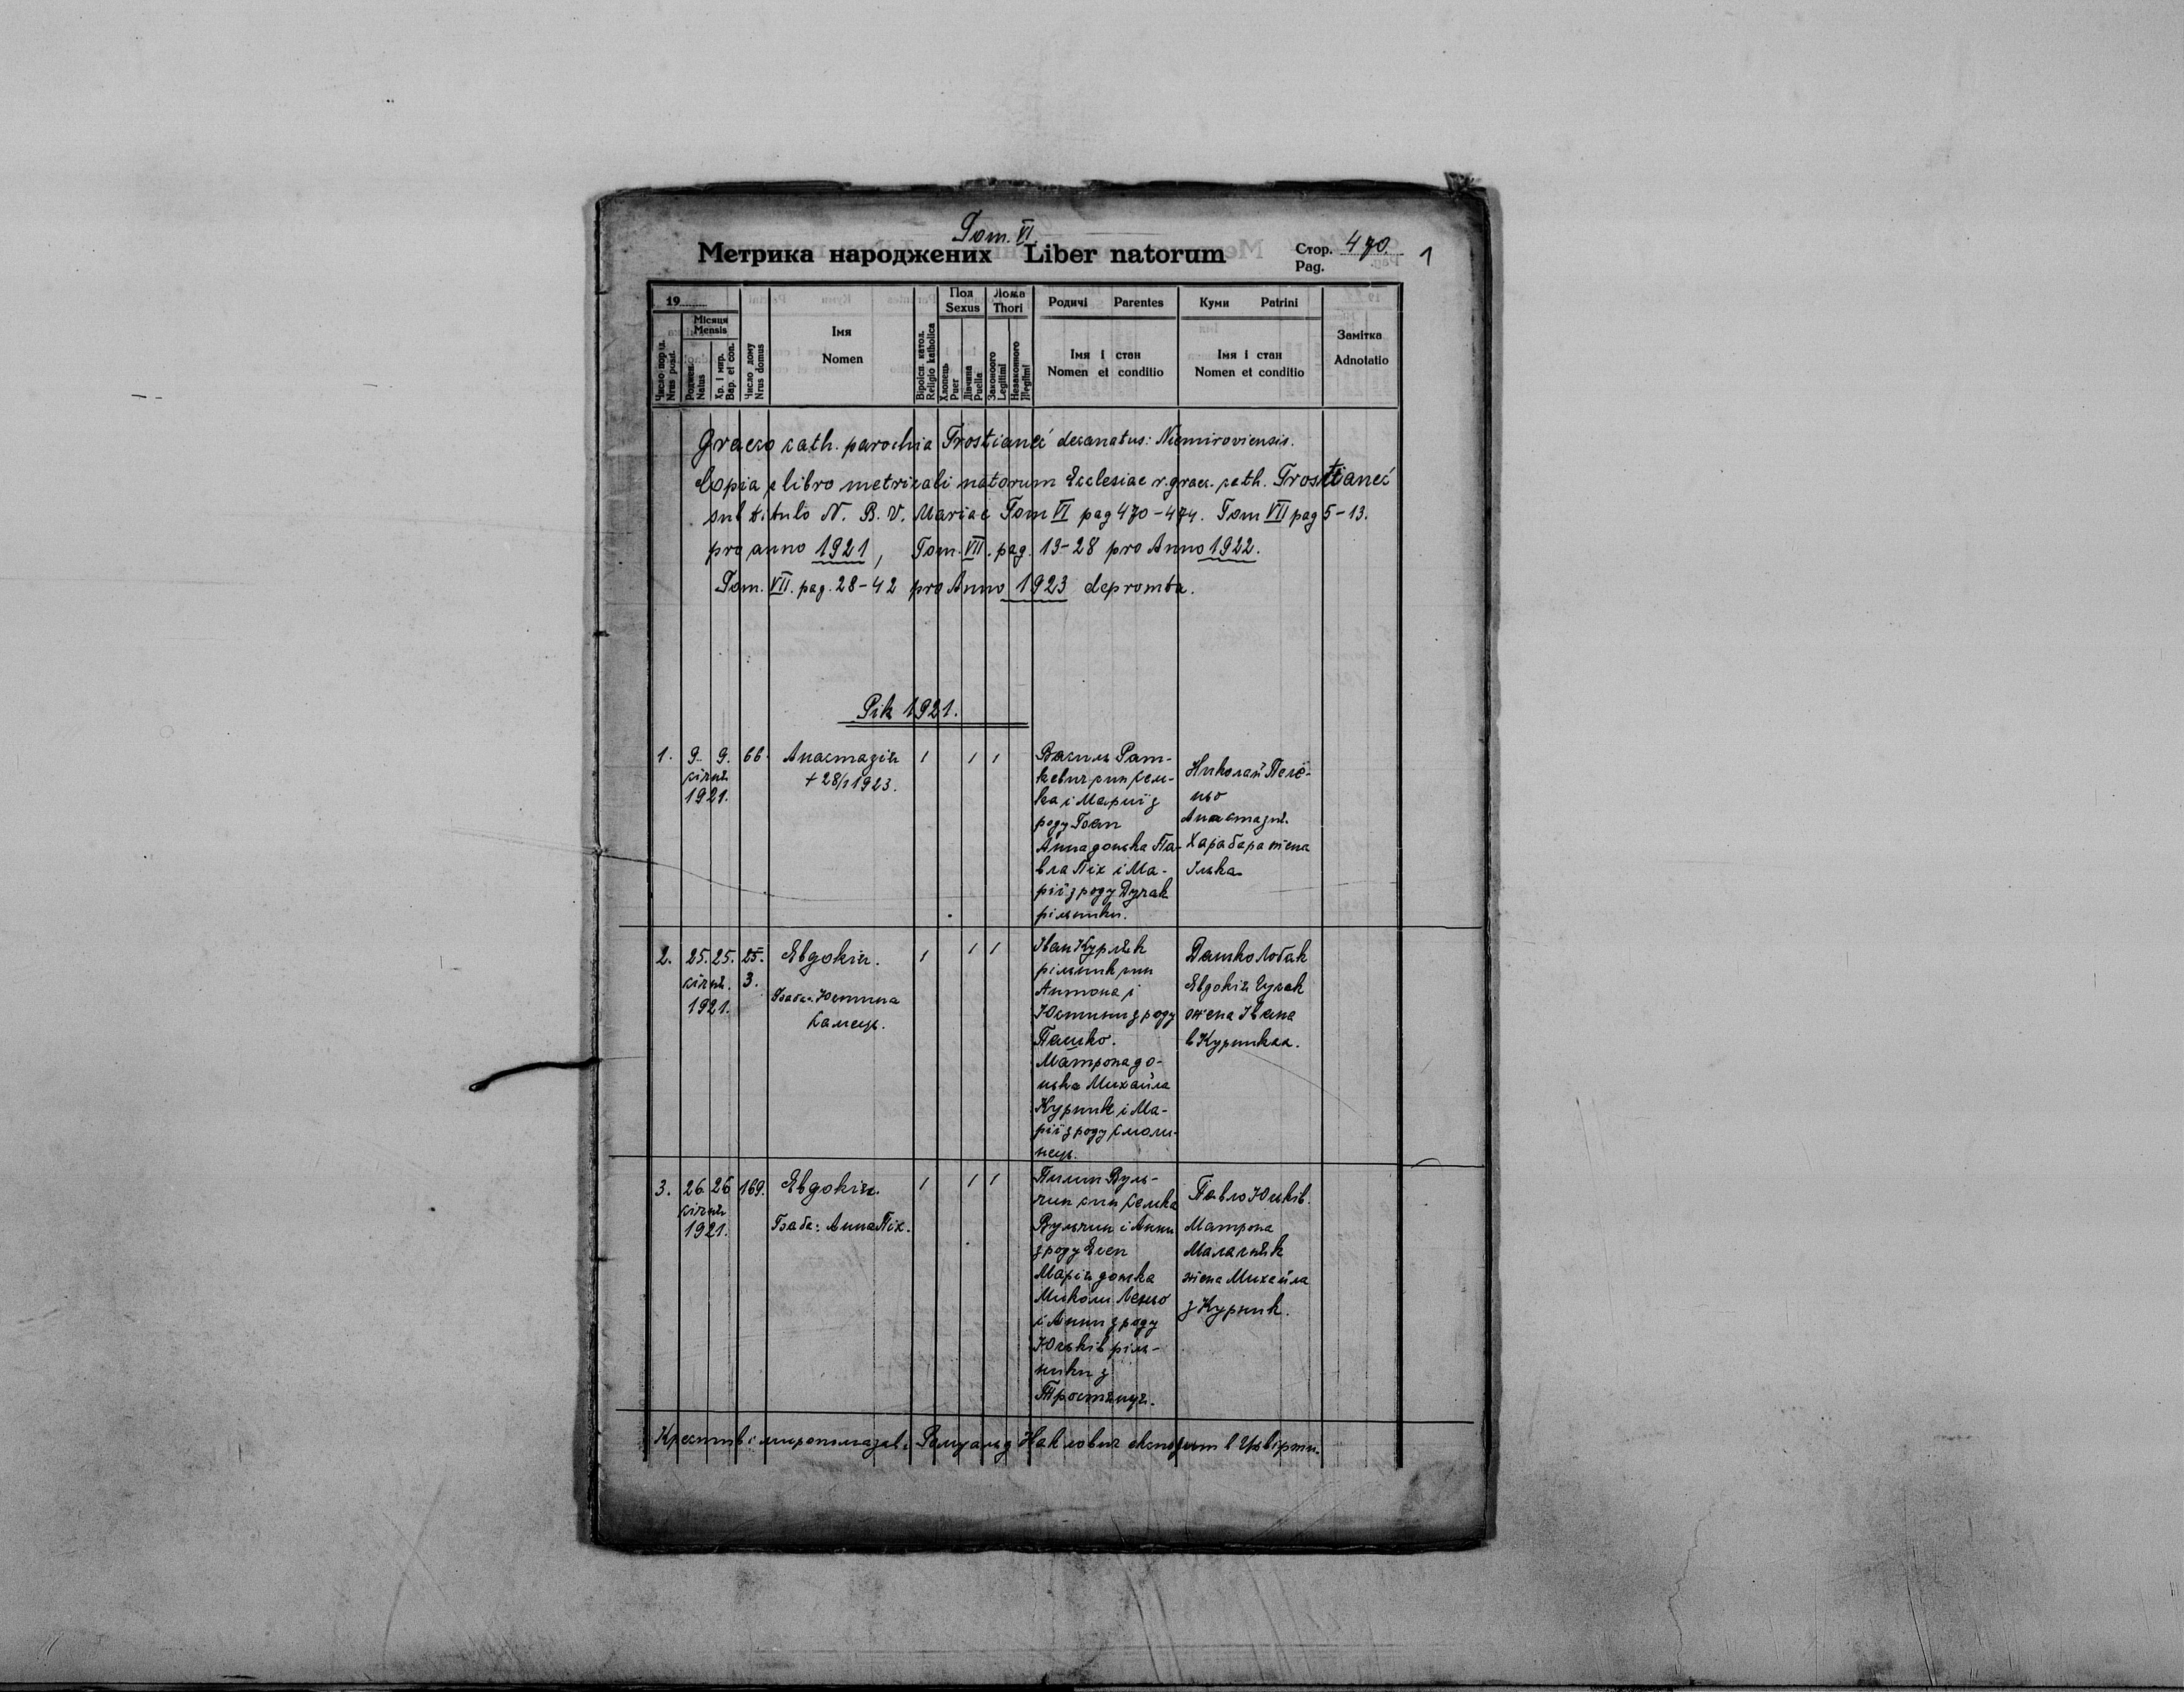 Tom. VI.
Метрика народжених Liber natorum
Стор. 470.
Pag.
1
19
Місяця
Mensis
Число поряд.
Nrus posit.
Роджен.
Natus
Хр. і мир.
Bap. et con.
Число дому
Nrus domus
Імя
Nomen
Віроісп. катол.
Religio katholica
Пол
Sexus
Хлопець
Puer
Дівчина
Puella
Ложа
Thori
Законного
Legitimi
Незаконного
Illegitimi
Родичі Parentes
Імя і стан
Nomen et conditio
Куми Patrini
Імя і стан
Nomen et conditio
Замітка
Adnotatio
Graeco cath. parochia Trostianeć decanatus: Niemiroviensis.
Copia e libro metricali natorum Ecclesiae r. graec. cath. Trostianeć
sub titulo N. B. V. Mariae Tom VI pag 470-474. Tom VII pag 5-13.
pro anno 1921, Tom. VII. pag. 13-28 pro Anno 1922.
Tom. VII. pag. 28-42 pro Anno 1923 deprompta.
Рік 1921.
1. 9. 9. 66.
січня
1921.
Анастазія
+ 28/1 1923.
Василь Рат-
кевич син Сем-
ка і Марії з
роду
Анна донька Па-
вла Піх і Ма-
рії з роду Дучак
рільники.
Николай
ньо
Анастазия
Харабара жена
Ілька
2. 25. 25. 25.
січня. 3.
1921.
Евдокія.
Баба: Юстина
Самець.
Іван Курляк
рільник син
Антона і
Юстини з роду
Пашко.
Матрона до-
нька Михайла
Курник і Ма-
рії з роду Смоли-
нець.
Дашко Лобак
Евдокія Чучак
жена Івана
в Курниках.
3. 26 26 169.
січня
1921.
Евдокія.
Баба: Анна Піх.
Пилип Вуль-
чин син Семка
Вульчин і Анни
з роду
Марія донька
Миколи Леньо
і Анни з роду
Юрьків ріль-
ники з
Тростянця.
Павло Юрьків.
Матрона
Малачняк
жена Михайла
з Курник.
Крестив і миропомазав: Ромуальд